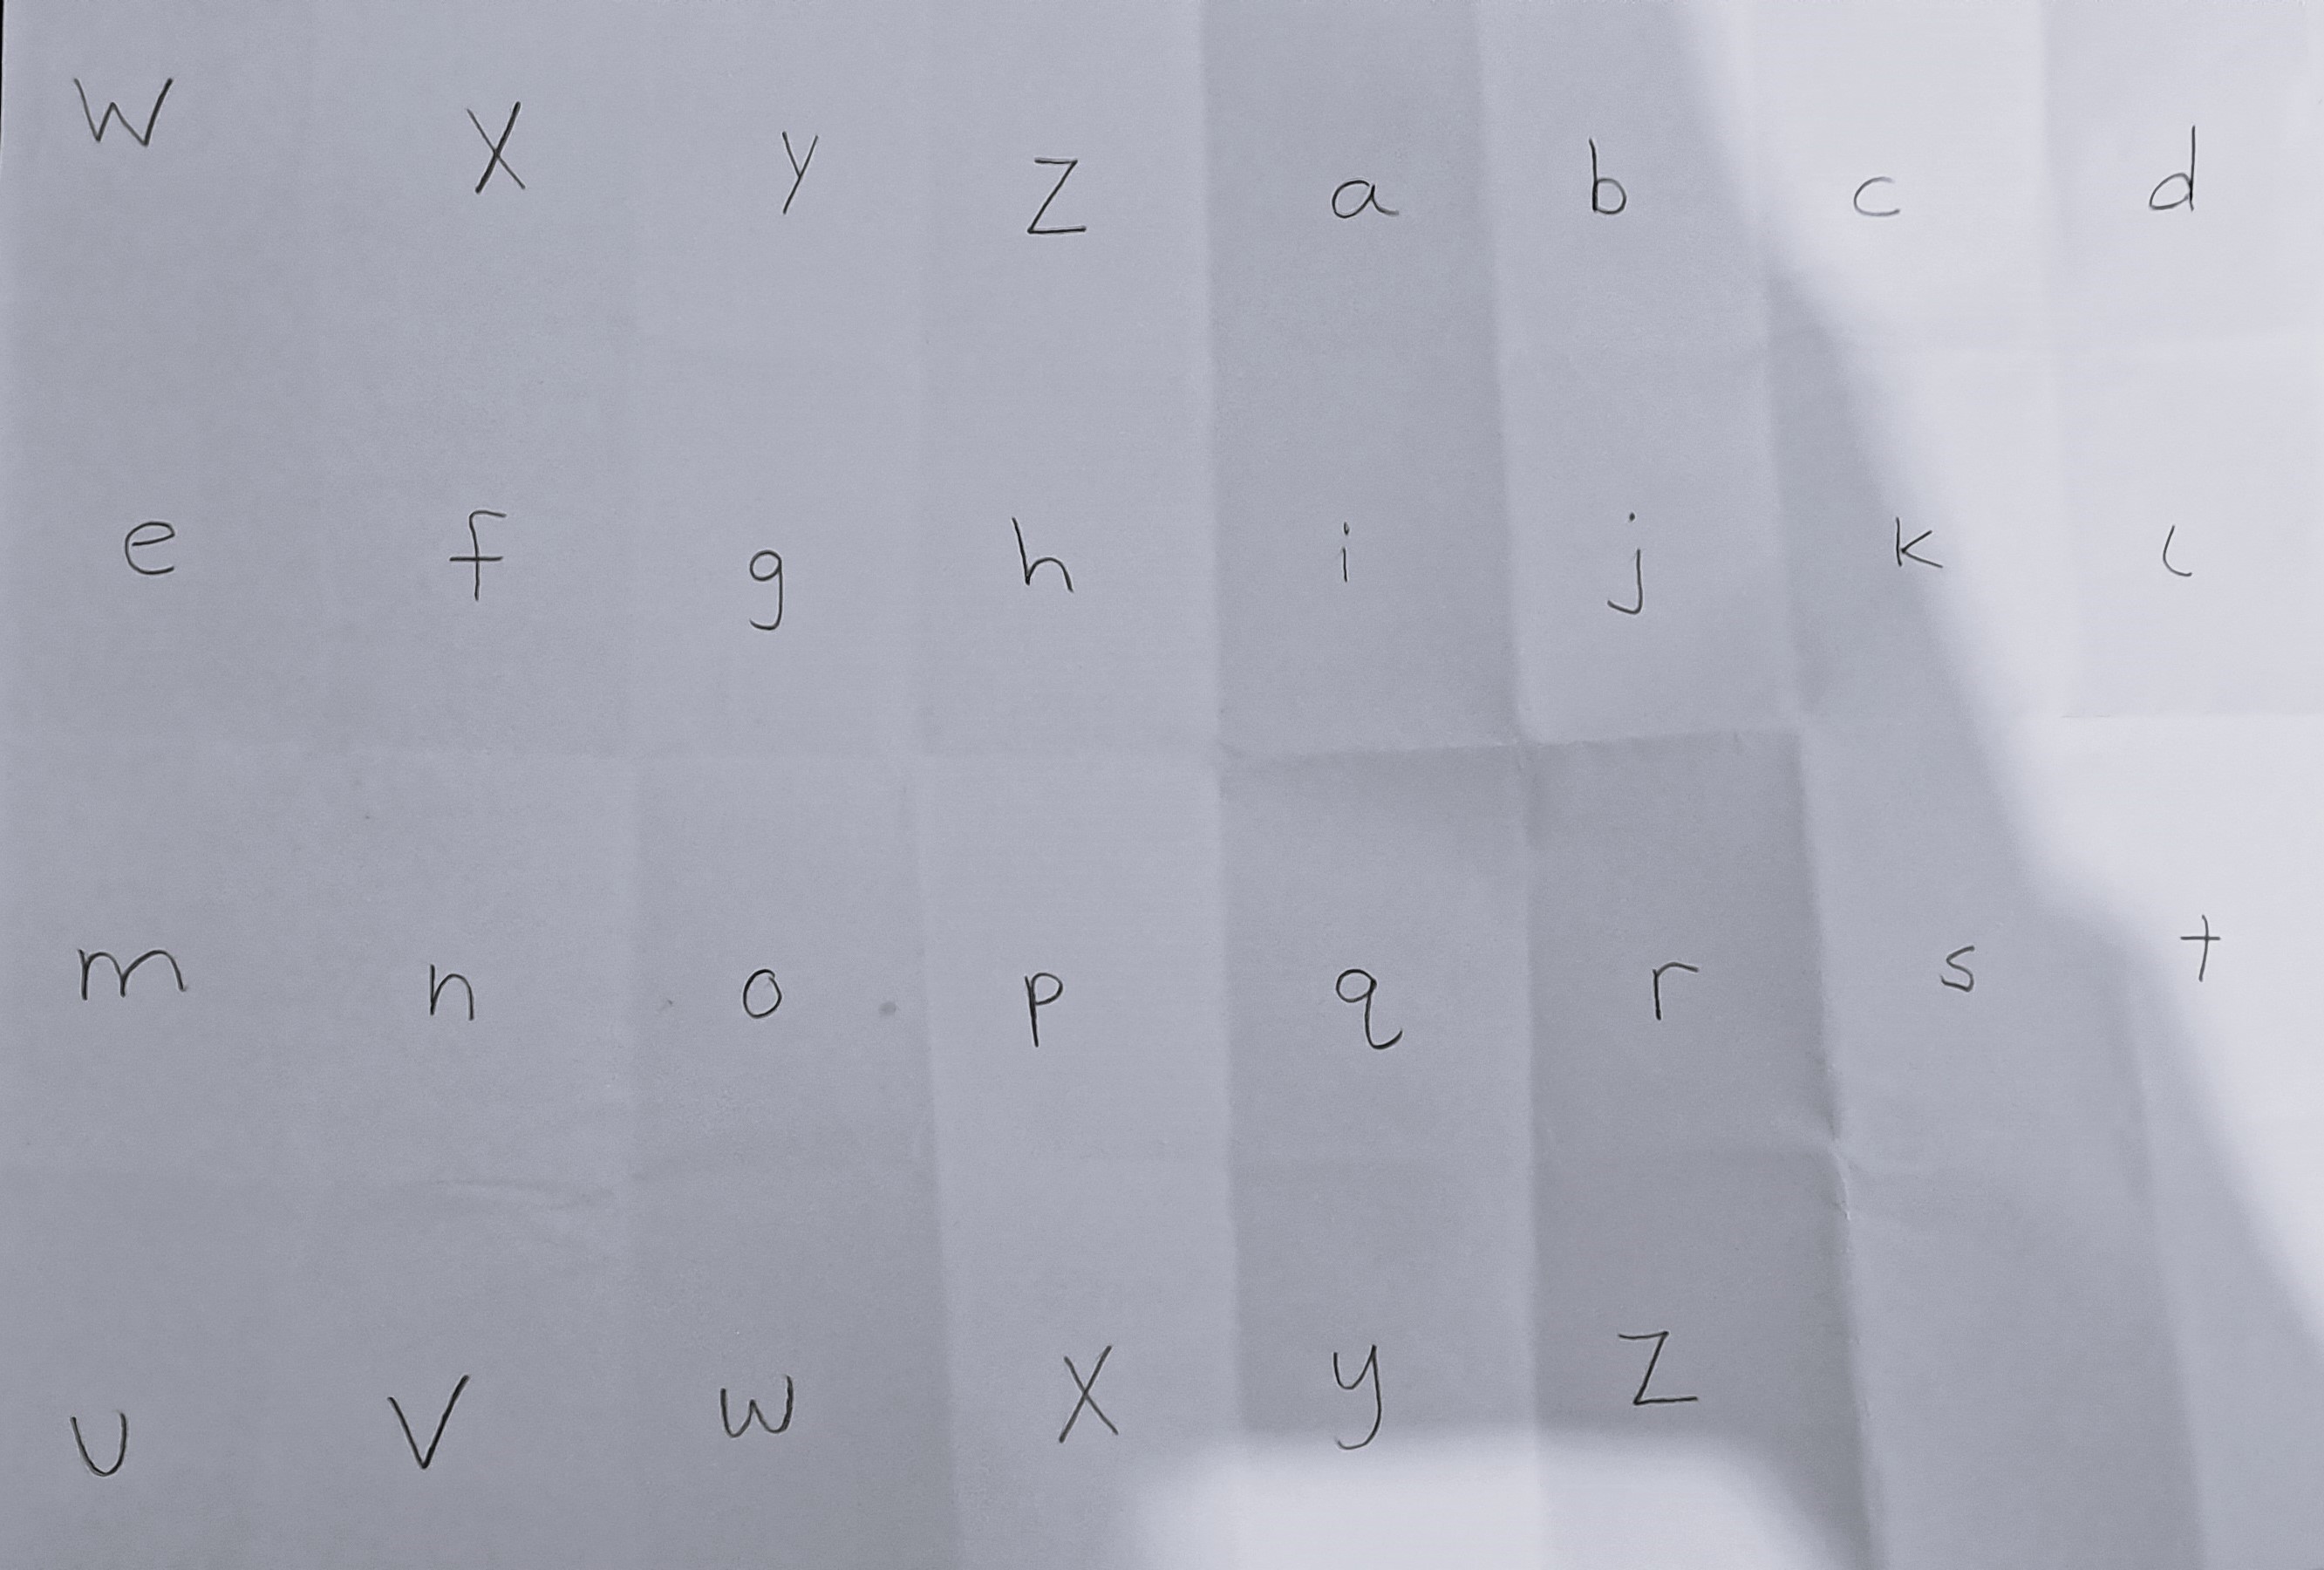 W X y Z a b c d
e f g h i j k l
m n o p q r s t
u v w x y z